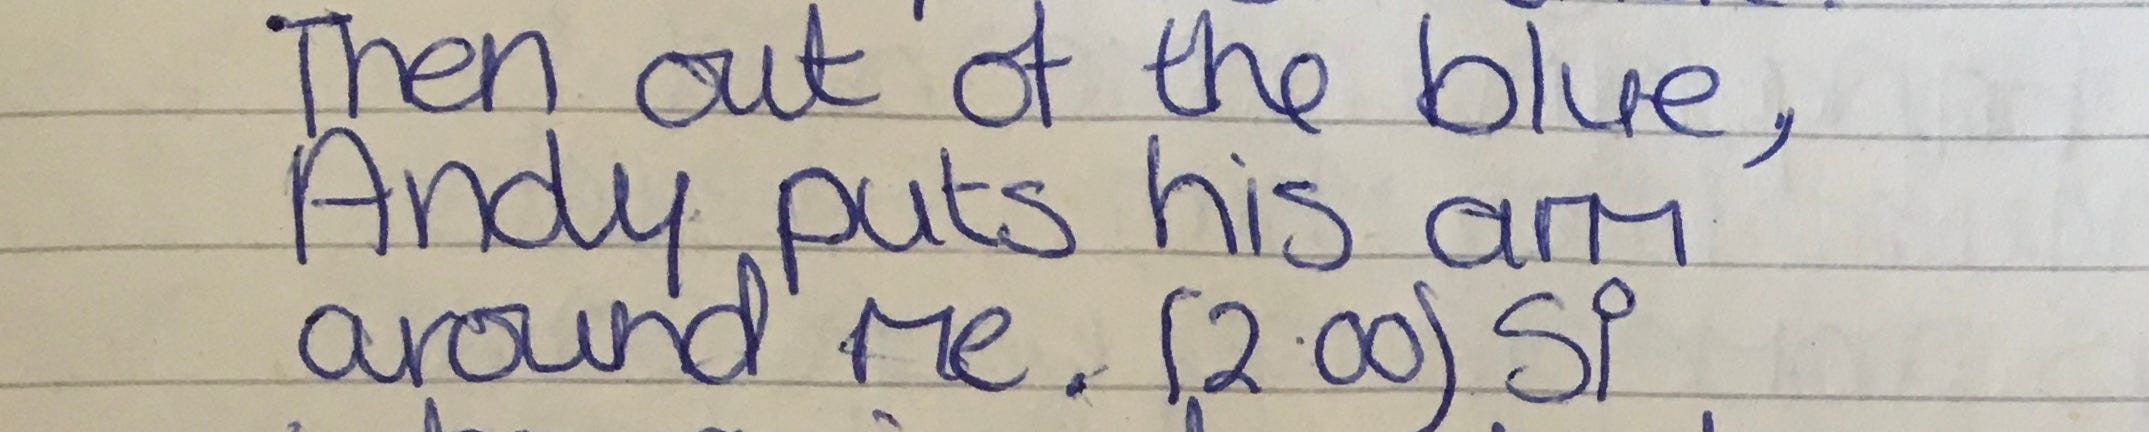 Then out of the blue,
Andy puts his arm
around me. (2.00) Si